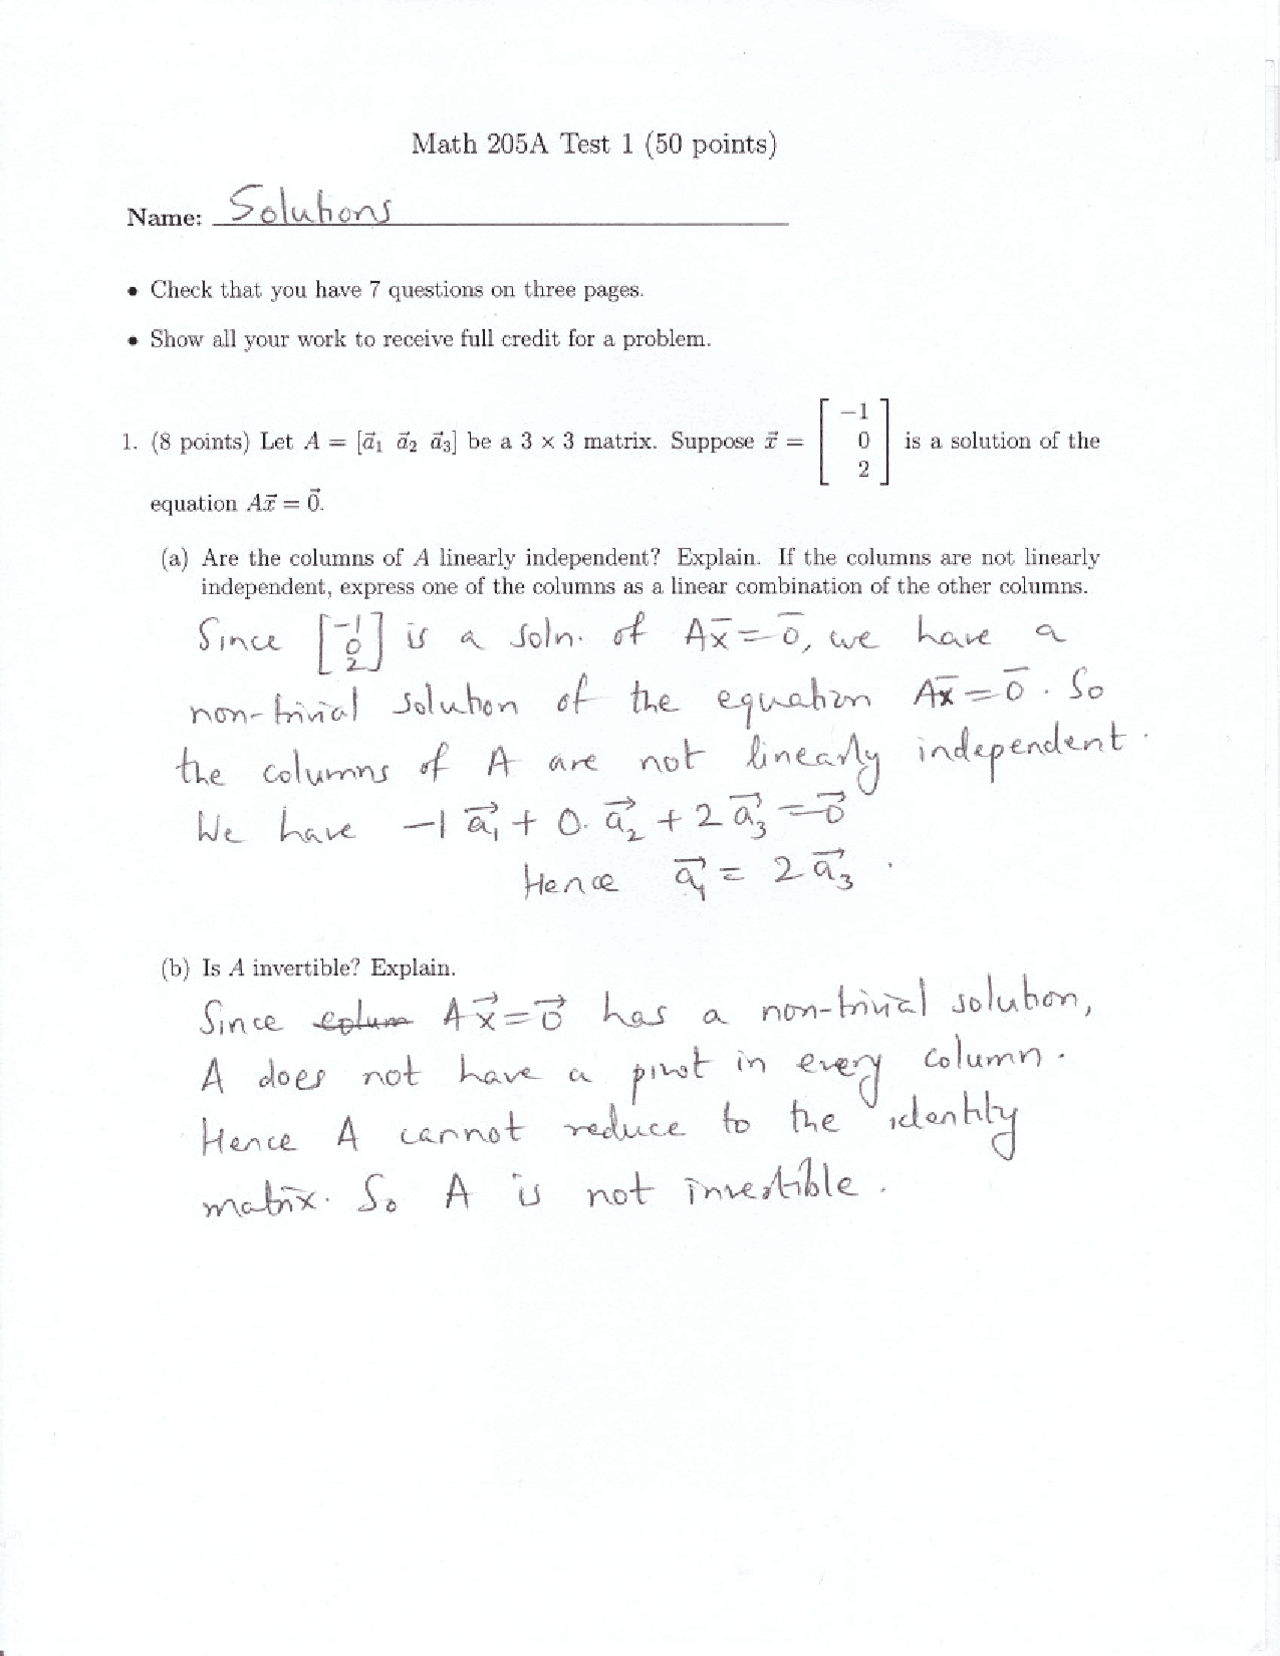 Math 205A Test 1 (50 points)
Name: Solutions
• Check that you have 7 questions on three pages.
• Show all your work to receive full credit for a problem.
1. (8 points) Let A = [a⃗₁ a⃗₂ a⃗₃] be a 3 × 3 matrix. Suppose x⃗ = [−1 0 2] is a solution of the
equation Ax⃗ = 0⃗.
(a) Are the columns of A linearly independent? Explain. If the columns are not linearly
independent, express one of the columns as a linear combination of the other columns.
Since [−1 0 2] is a soln. of Ax̄ = 0̄, we have a
non-trivial solution of the equation Ax̄ = 0̄. So
the columns of A are not linearly independent.
We have −1 a⃗₁ + 0. a⃗₂ + 2 a⃗₃ = 0⃗
Hence a⃗₁ = 2 a⃗₃.
(b) Is A invertible? Explain.
Since colum Ax⃗ = 0⃗ has a non-trivial solution,
A does not have a pivot in every column.
Hence A cannot reduce to the identity
matrix. So A is not invertible.